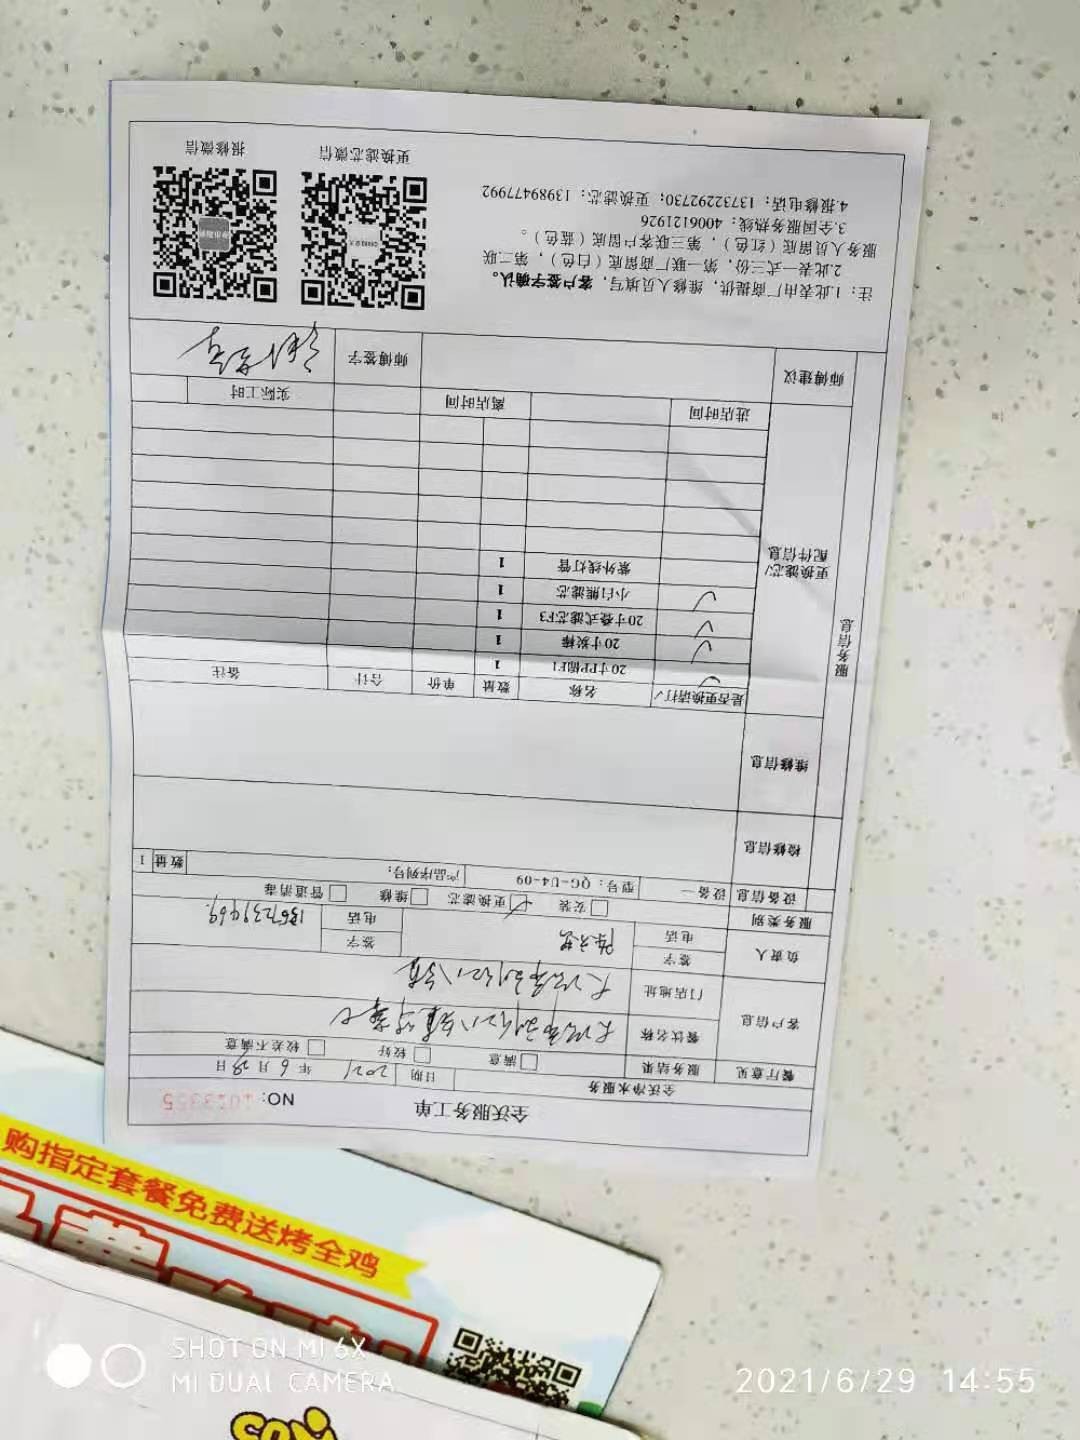 全沃服务工单
NO: 1023355
全沃净水服务
日期 2021 年 6 月 29 日
餐厅意见 服务结果 满意 较好 较差不满意
客户信息 餐饮名称
门店地址
负责人 签字 签字
电话 电话
服务类别 安装 更换滤芯 ✓ 维修 管道消毒
设备信息 设备一 型号：QG-U4-09 产品序列号： 数量 1
检修信息
维修信息
服务信息
更换滤芯/配件信息
是否更换请打√ 名称 数量 单价 合计 备注
✓ 20寸PP棉F1 1
✓ 20寸炭棒 1
✓ 20寸叠式滤芯F3 1
✓ 小白熊滤芯 1
紫外线灯管 1
进店时间 离店时间 实际工时
师傅建议 师傅签字
注：1.此表由厂商提供，维修人员填写，客户签字确认。
2.此表一式三份，第一联厂商留底（白色），第二联
服务人员留底（红色），第三联客户留底（蓝色）。
3.全国服务热线：4006121926
4.报修电话：13732292730；更换滤芯：13989477992
更换滤芯微信 报修微信
购指定套餐免费送烤全鸡
SHOT ON MI 6X
MI DUAL CAMERA
2021/6/29 14:55